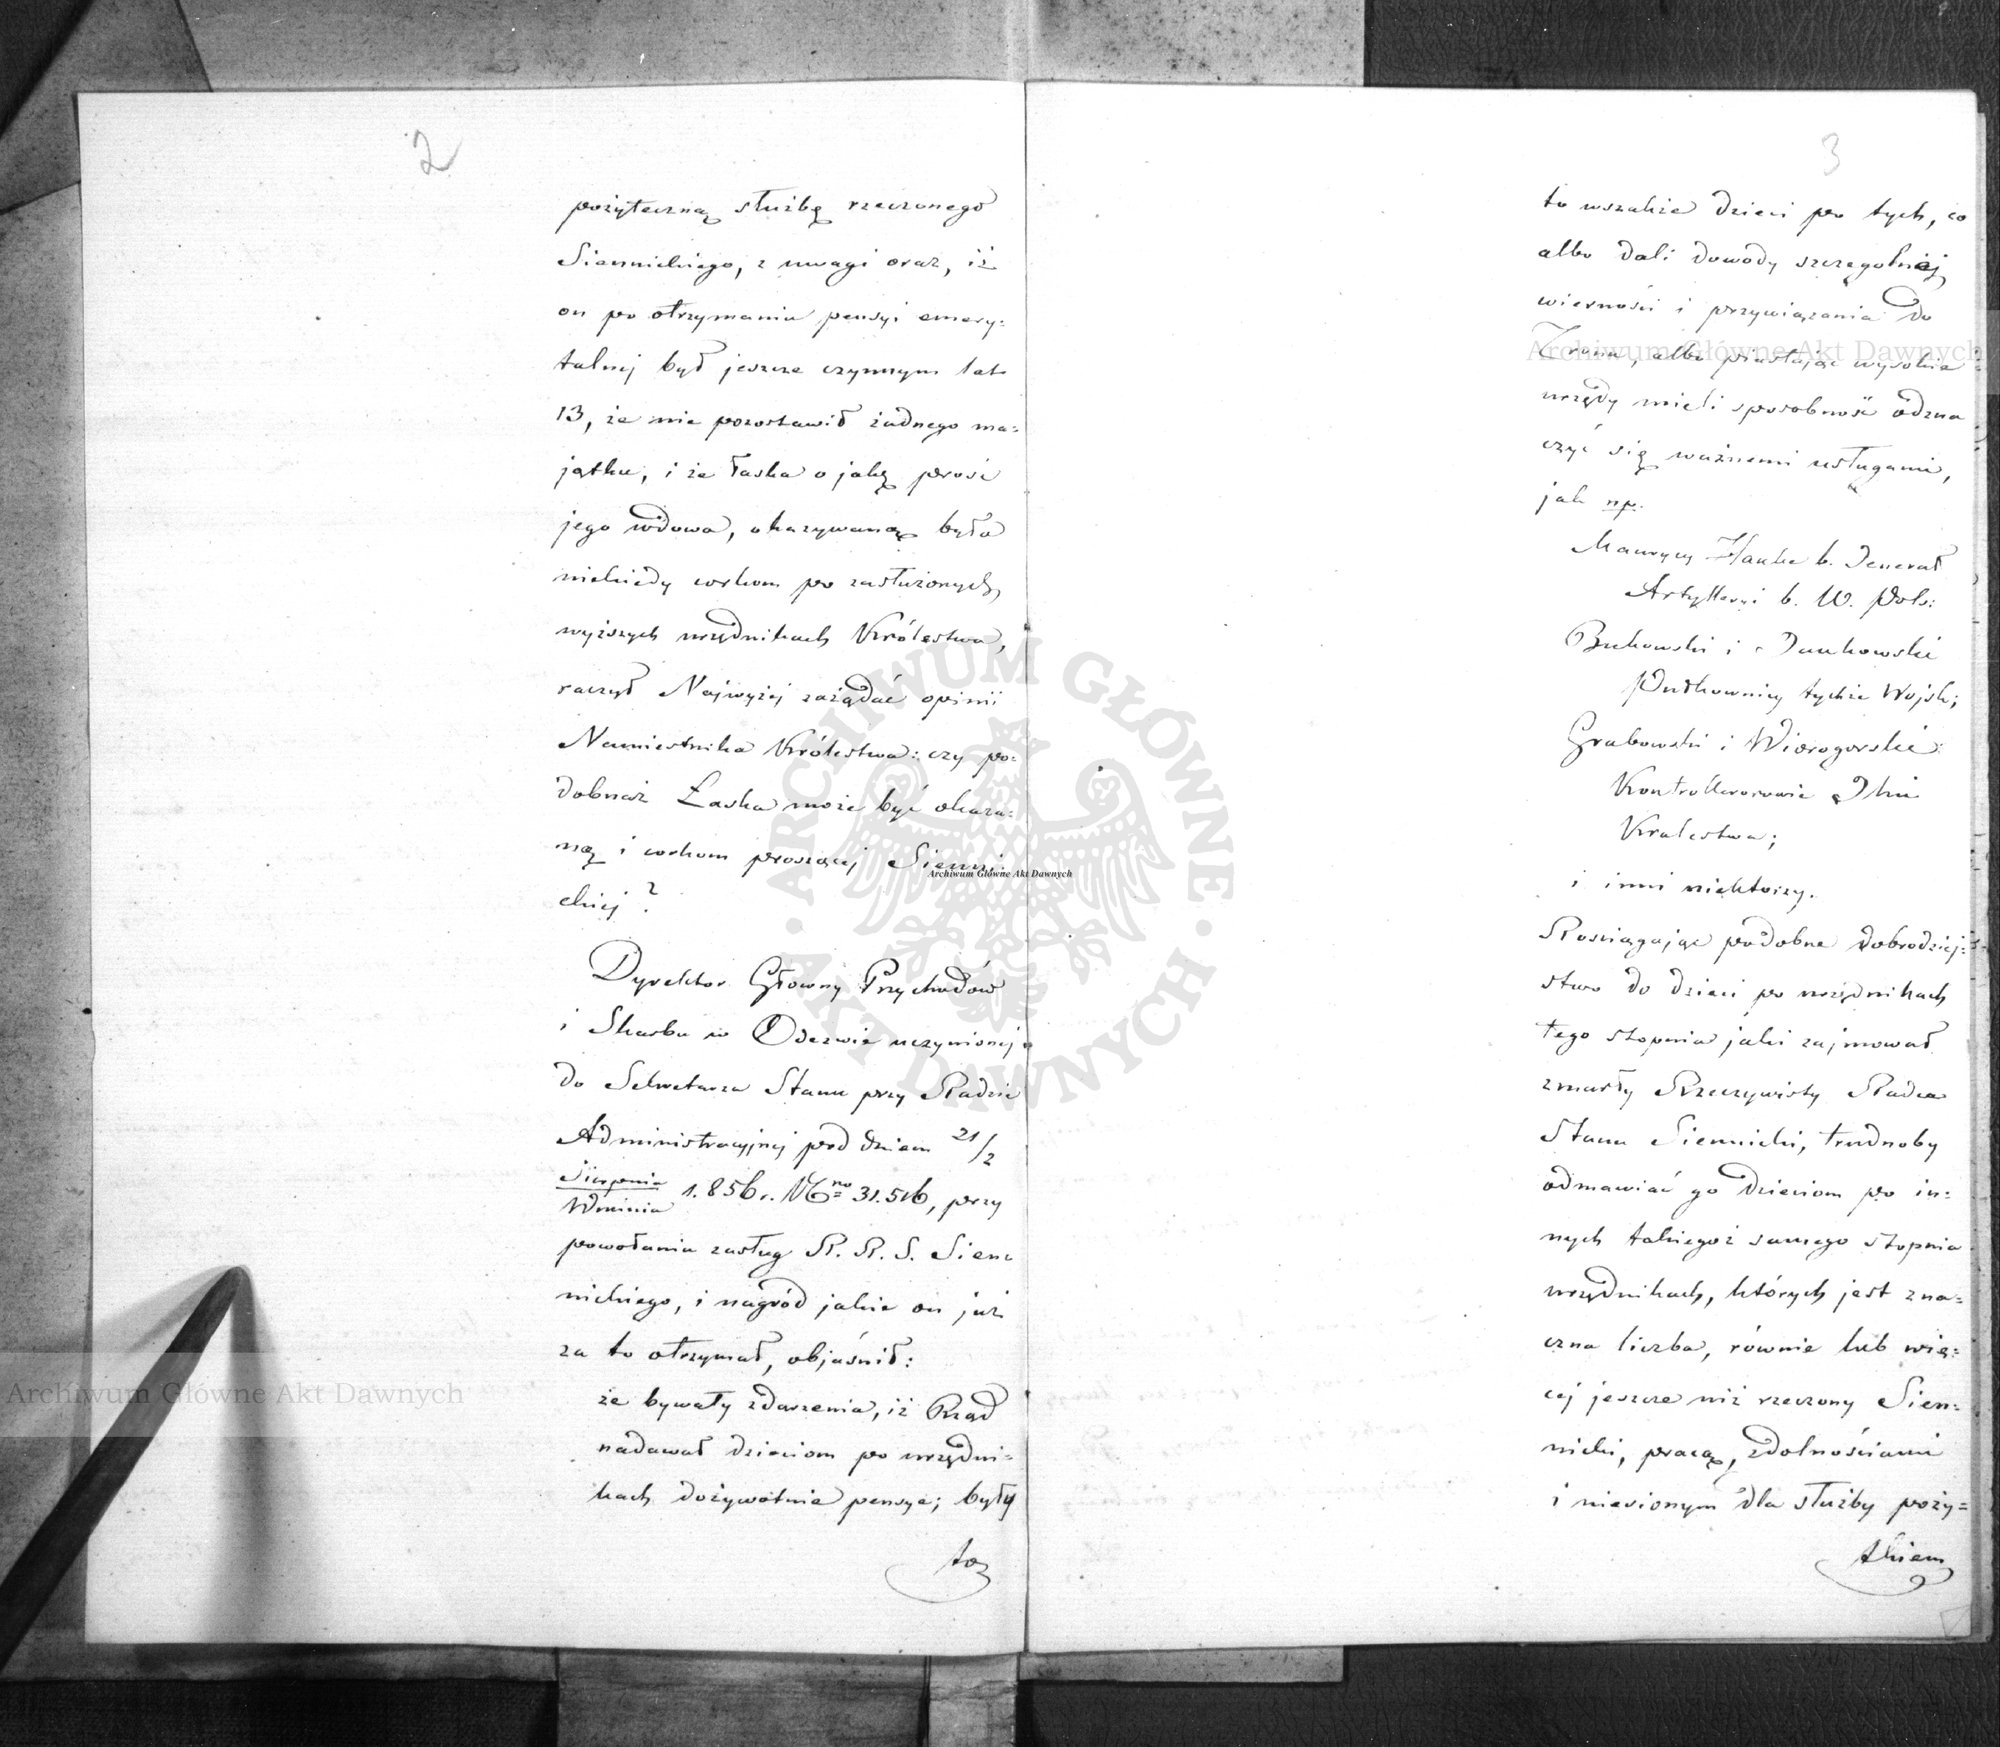 2
pożyteczną służbę rzeczonego
Siennickiego, z uwagi oraz, iż
on po otrzymaniu pensyi emery:
talnej był jeszcze czynnym lat
13, że nie pozostawił żadnego ma:
jątku, i że łaska o jaką prosi
jego wdowa, okazywaną była
niekiedy córkom po zasłużonych
wyższych urzędnikach Królestwa,
raczył Najwyżej zażądać opinii
Namiestnika Królestwa: czy po:
dobnaż Łaska może być okaza:
ną i córkom proszącej Sienni:
ckiej?
Dyrektor Główny Przychodów
i Skarbu w Odezwie uczynionej
do Sekretarza Stanu przy Radzie
Administracyjnej pod dniem 21/2
Sierpnia
Września 1.856 r. No 31.516, przy
powołaniu zasług R. R. S. Sien:
nickiego, i nagród jakie on już
za to otrzymał, objaśnił:
że bywały zdarzenia, iż Rząd
nadawał dzieciom po urzędni:
kach dożywotnie pensye; były
to
3
to wszakże dzieci po tych, co
albo dali dowody szczególniej
wierności i przywiązania do
Tronu, albo piastując wysokie
urzędy mieli sposobność odzna
czyć się ważnemi usługami,
jak np.
Maurycy Hauke b. Jenerał
Artylleryi b. W. Pols:
Bukowski i Jankowski
Pułkownicy tychże Wojsk;
Grabowski i Wiorogorski
Kontrollerowie Jlni
Królestwa;
i inni niektórzy.
Rosciągając podobne dobrodziej:
stwo do dzieci po urzędnikach
tego stopnia jaki zajmował
zmarły Rzeczywisty Radca
Stanu Siennicki, trudnoby
odmawiać go dzieciom po in:
nych takiegoż samego stopnia
urzędnikach, których jest zna:
czna liczba, równie lub wię:
cej jeszcze niż rzeczony Sien:
nicki, pracą, zdolnościami
i niesionym dla służby poży:
tkiem
Archiwum Główne Akt Dawnych
Archiwum Główne Akt Dawnych
Archiwum Główne Akt Dawnych
ARCHIWUM GŁÓWNE AKT DAWNYCH